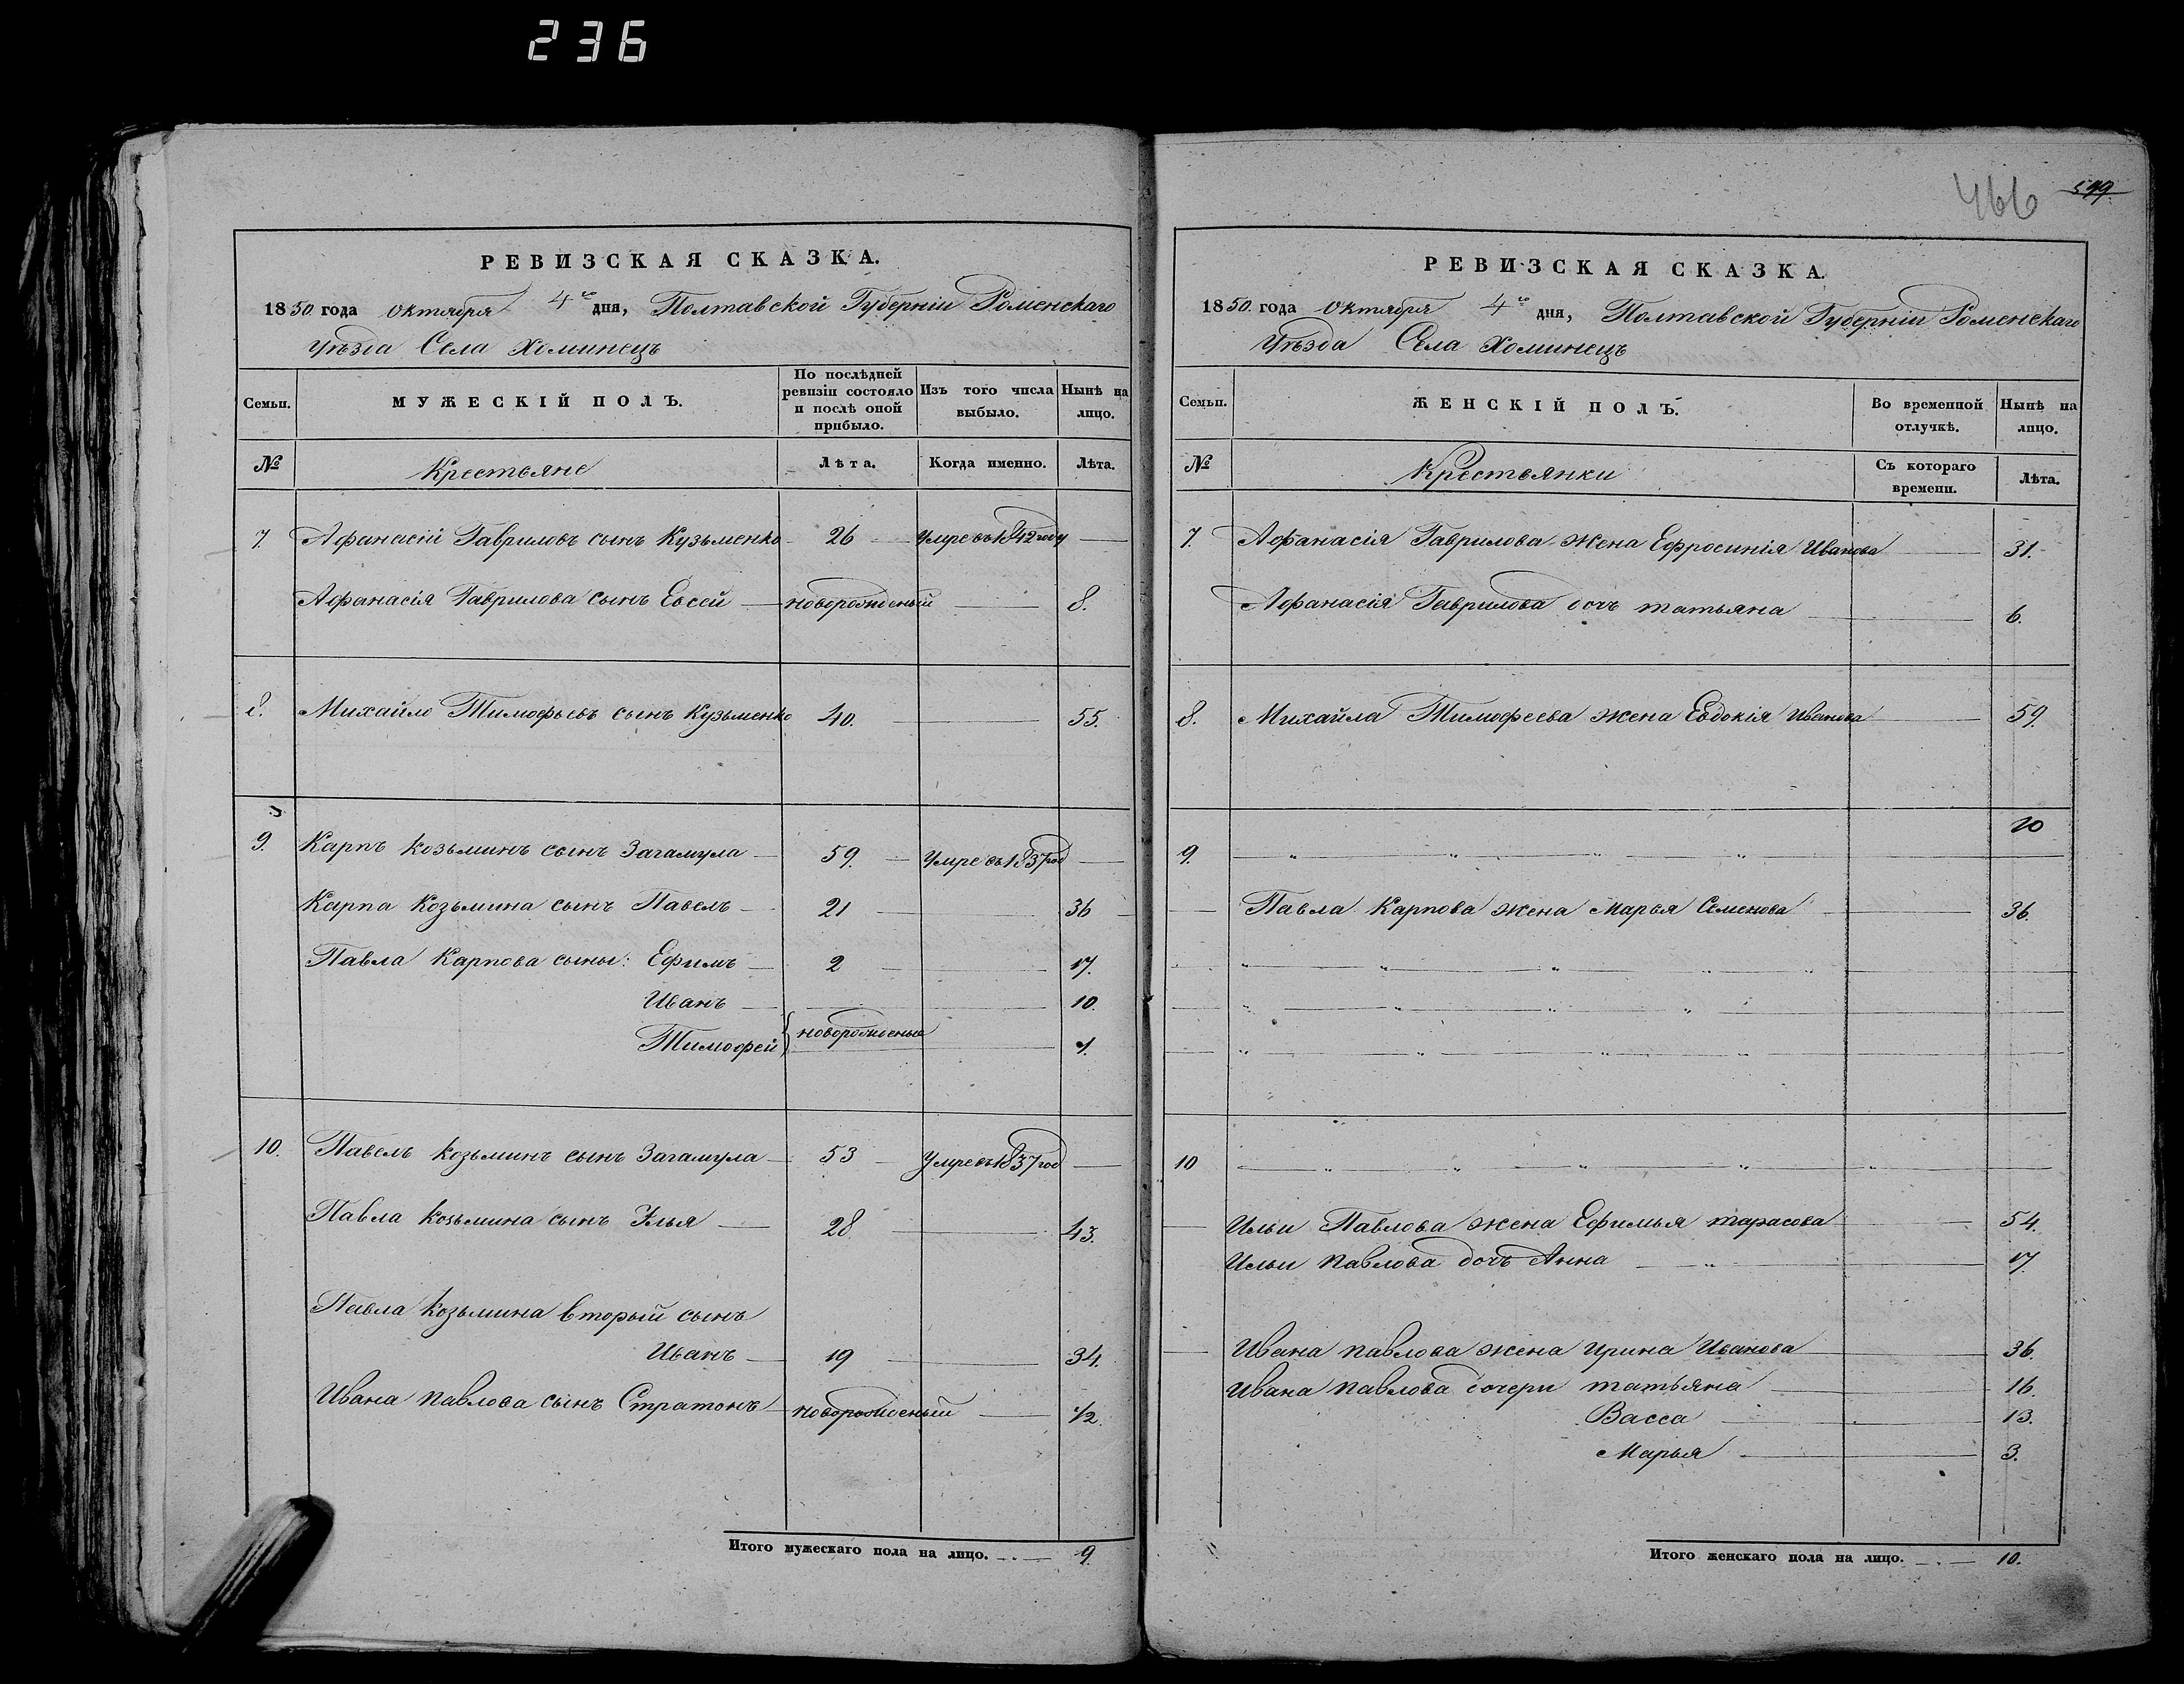 236
РЕВИЗСКАЯ СКАЗКА.
1850 года Октября 4го дня, Полтавской Губерніи Роменскаго
Уѣзда Села Хоминецъ
Семьи.
МУЖЕСКІЙ ПОЛЪ.
По послѣдней ревизіи состояло и послѣ оной прибыло.
Изъ того числа выбыло.
Нынѣ на лицо.
№
Крестьяне
Лѣта.
Когда именно.
Лѣта.
7. Афанасій Гавриловъ сынъ Кузьменко 26 Умре въ 1842 году
Афанасія Гаврилова сынъ Евсей новорожденый 8.
8. Михайло Тимофѣевъ сынъ Кузьменко 40. 55.
9. Карпъ Козьминъ сынъ Загамула 59. Умре въ 1837 год
Карпа Козьмина сынъ Павелъ 21 36
Павла Карпова сыны: Ефимъ 2 17.
Иванъ 10.
Тимофей новорожденые
10. Павелъ Козьминъ сынъ Загамула 53 Умре въ 1837 год
Павла Козьмина сынъ Илья 28 43.
Павла Козьмина вторый сынъ
Иванъ 19 34.
Ивана Павлова сынъ Стратонъ новорожденый 1/2.
Итого мужескаго пола на лицо. 9.
466 599
РЕВИЗСКАЯ СКАЗКА.
1850. года Октября 4го дня, Полтавской Губерніи Роменскаго
Уѣзда Села Хоминецъ
Семьи.
ЖЕНСКІЙ ПОЛЪ.
Во временной отлучкѣ.
Нынѣ на лицо.
№
Крестьянки
Съ котораго времени.
Лѣта.
7. Афанасія Гаврилова жена Ефросинія Иванова 31.
Афанасія Гаврилова дочь татьяна 6.
8. Михайла Тимофеева жена Евдокія Иванова 59.
20
9.
Павла Карпова жена Марья Семенова 36.
10
Ильи Павлова жена Ефимья тарасова 54.
Ильи Павлова дочь Анна 17.
Ивана Павлова жена Ирина Иванова 36.
Ивана Павлова дочери татьяна 16.
Васса 13.
Марья 3.
Итого женскаго пола на лицо. 10.